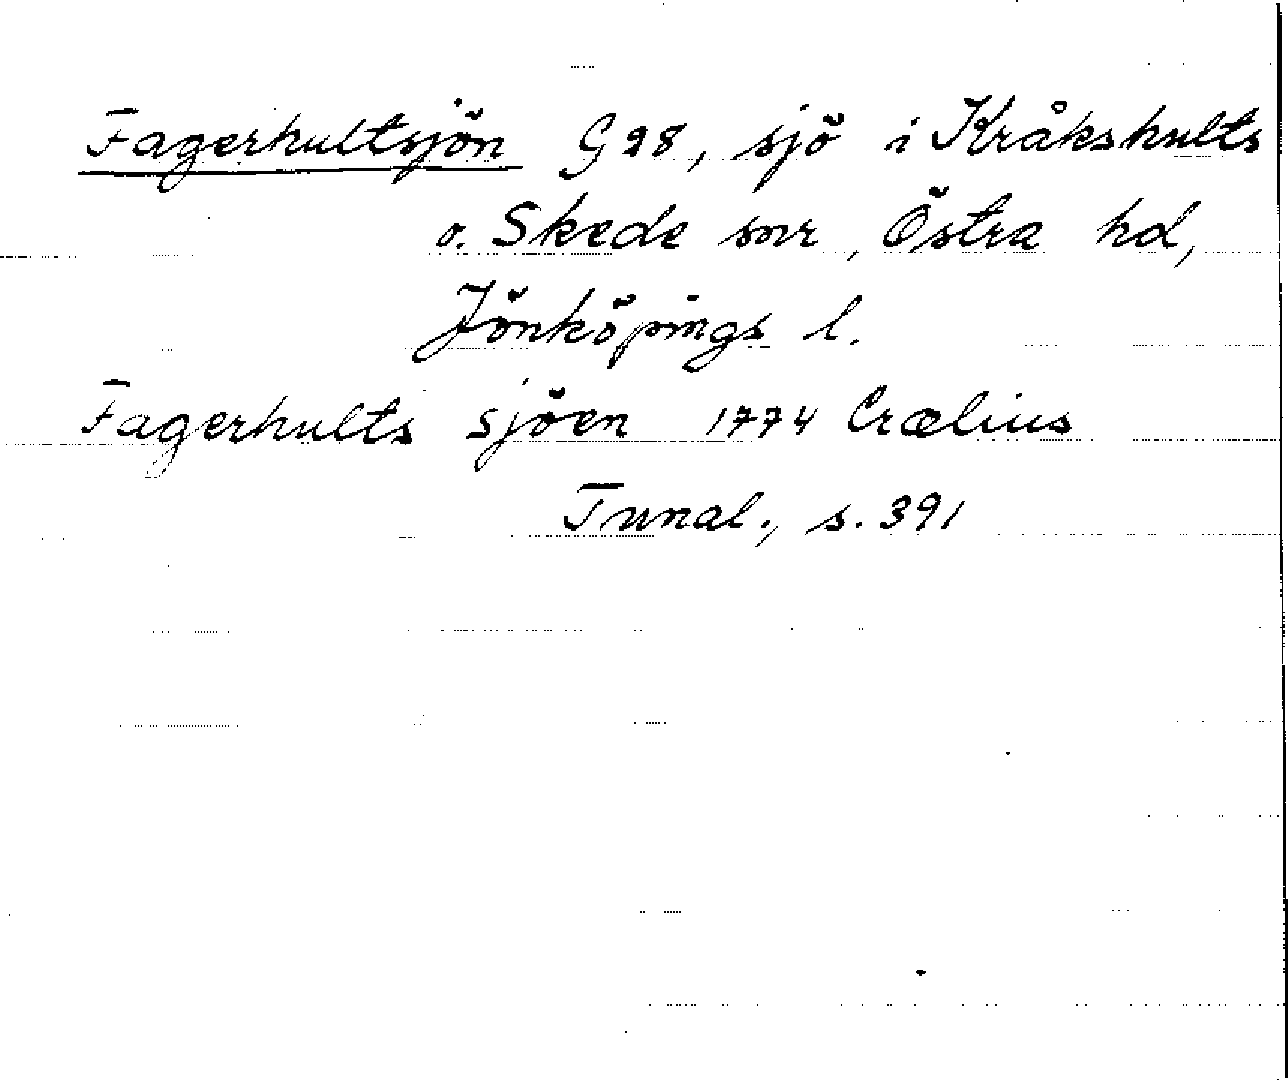 Fagerhultsjön G 28, sjö i Kråkshults
o. Skede snr, Östra hd,
Jönköpings l.
Fagerhults sjöen 1774 Crælius
Tunal., s. 391